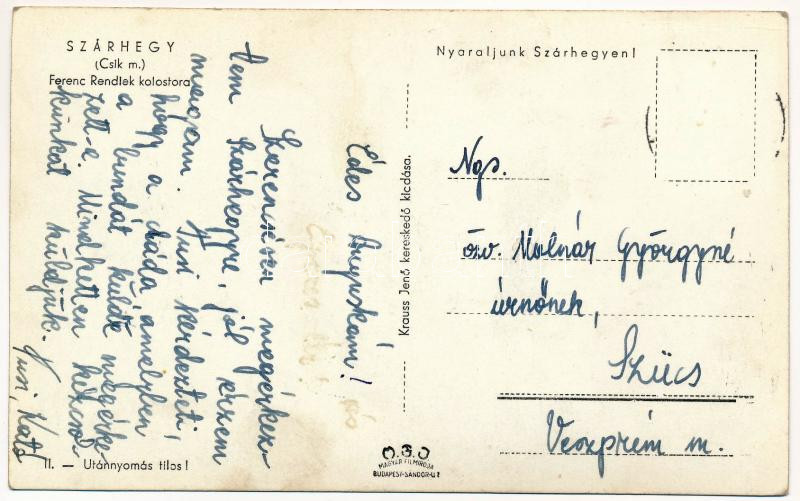 SZÁRHEGY
(Csík m.)
Ferenc Rendiek kolostora
Nyaraljunk Szárhegyen!
Édes Anyuskám!
Szerencsésen megérkez-
tem Szárhegyre, jól érzem
magam. Jusi kérdezteti,
hogy a láda amelyben
a bundát küldte megérke-
zett-e. Mindketten kézcsó-
kunkat küldjük.
Jusi, Kató
Krauss Jenő kereskedő kiadása.
Ngs.
özv. Molnár Györgyné
úrnőnek,
Szücs
Veszprém m.
II. — Utánnyomás tilos!
M.F.I.
MAGYAR FILMIRODA
BUDAPEST-SÁNDOR-U. 7